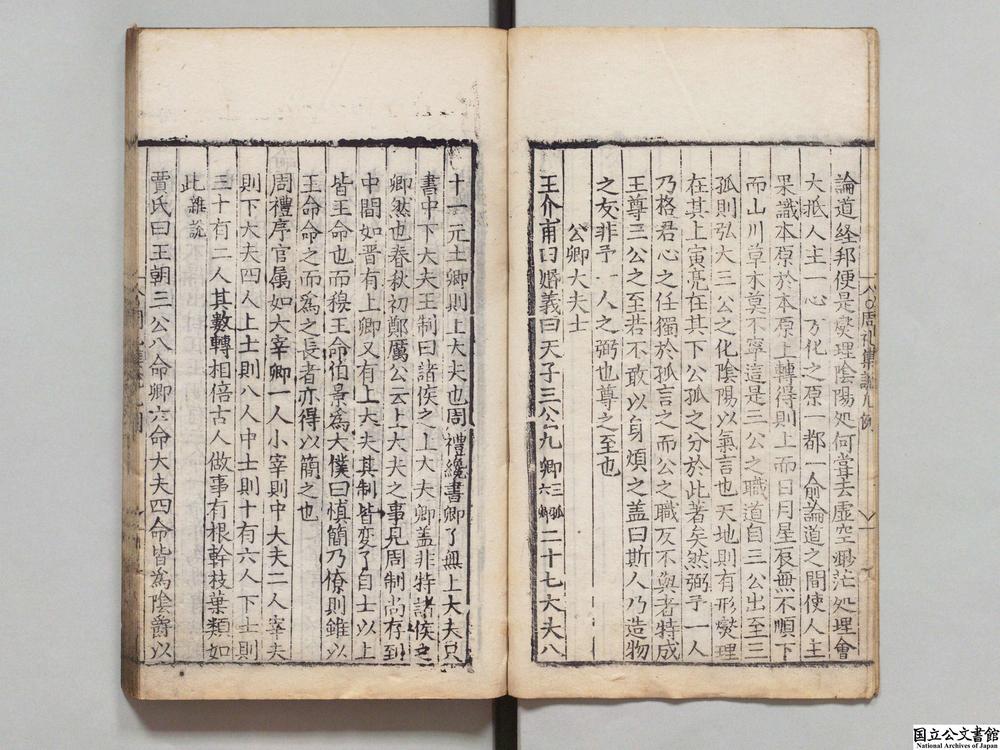 論道経邦便是燮理陰陽処何嘗去虚空渺茫処理會
大抵人主一心万化之原一都一俞論道之間使人主
果識本原於本原上轉得則上而日月星辰無不順下
而山川草木莫不寧這是三公之職道自三公出至三
孤則弘大三公之化陰陽以氣言也天地則有形燮理
在其上寅亮在其下公孤之分於此著矣然弼予一人
乃格君心之任獨於孤言之而公之職反不與者特成
王尊三公之至若不敢以身煩之蓋曰斯人乃造物
之友非予一人之弼也尊之至也
公卿大夫士
王介甫曰婚義曰天子三公九卿三孤六卿二十七大夫八
十一元士卿則上大夫也周禮纔書卿了無上大夫只
書中下大夫王制曰諸侯之上大夫卿蓋非特諸侯之
卿然也春秋初鄭厲公云上大夫之事見周制尚存到
中間如晋有上卿又有上大夫其制皆変了自士以上
皆王命也而穆王命伯景為大僕曰慎簡乃僚則雖以
王命命之而為之長者亦得以簡之也
周禮序官属如大宰卿一人小宰則中大夫二人宰夫
則下大夫四人上士則八人中士則十有六人下士則
三十有二人其數轉相倍古人做事有根幹枝葉類如
此雜說
賈氏曰王朝三公八命卿六命大夫四命皆為陰爵以
国立公文書館
National Archives of Japan